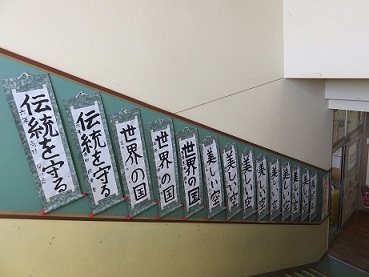 伝統を守る
伝統を守る
世界の国
世界の国
世界の国
美しい空
美しい空
美しい空
美しい空
美しい空
美しい空